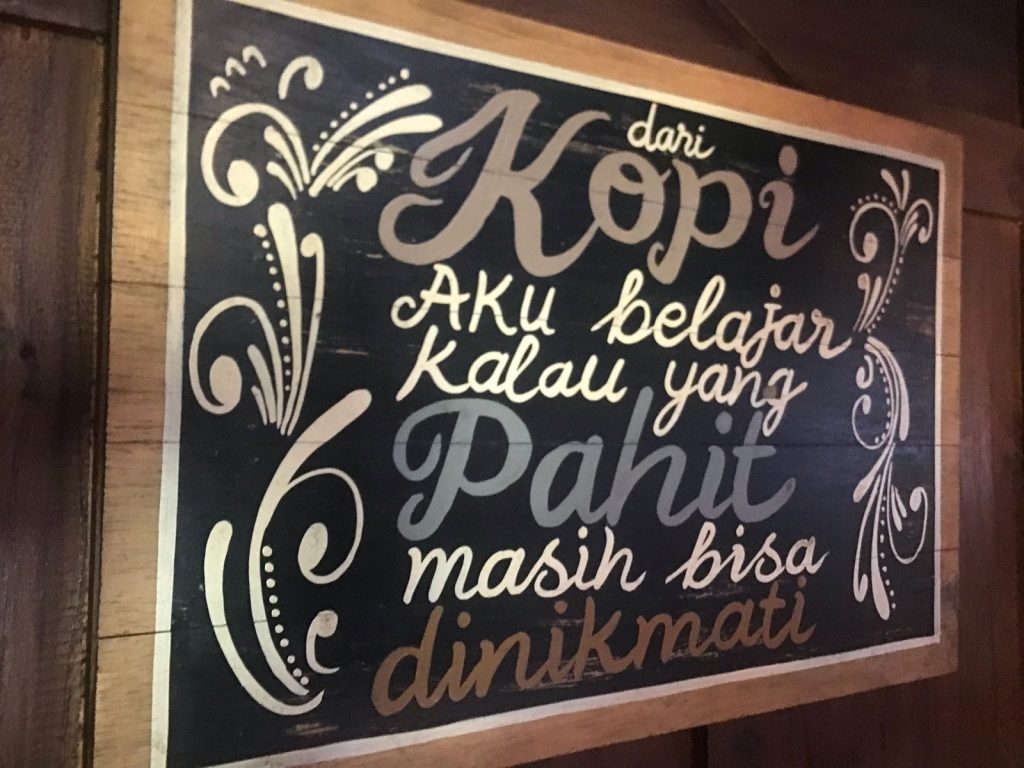 dari
Kopi
AKU belajar
Kalau yang
Pahit
masih bisa
dinikmati